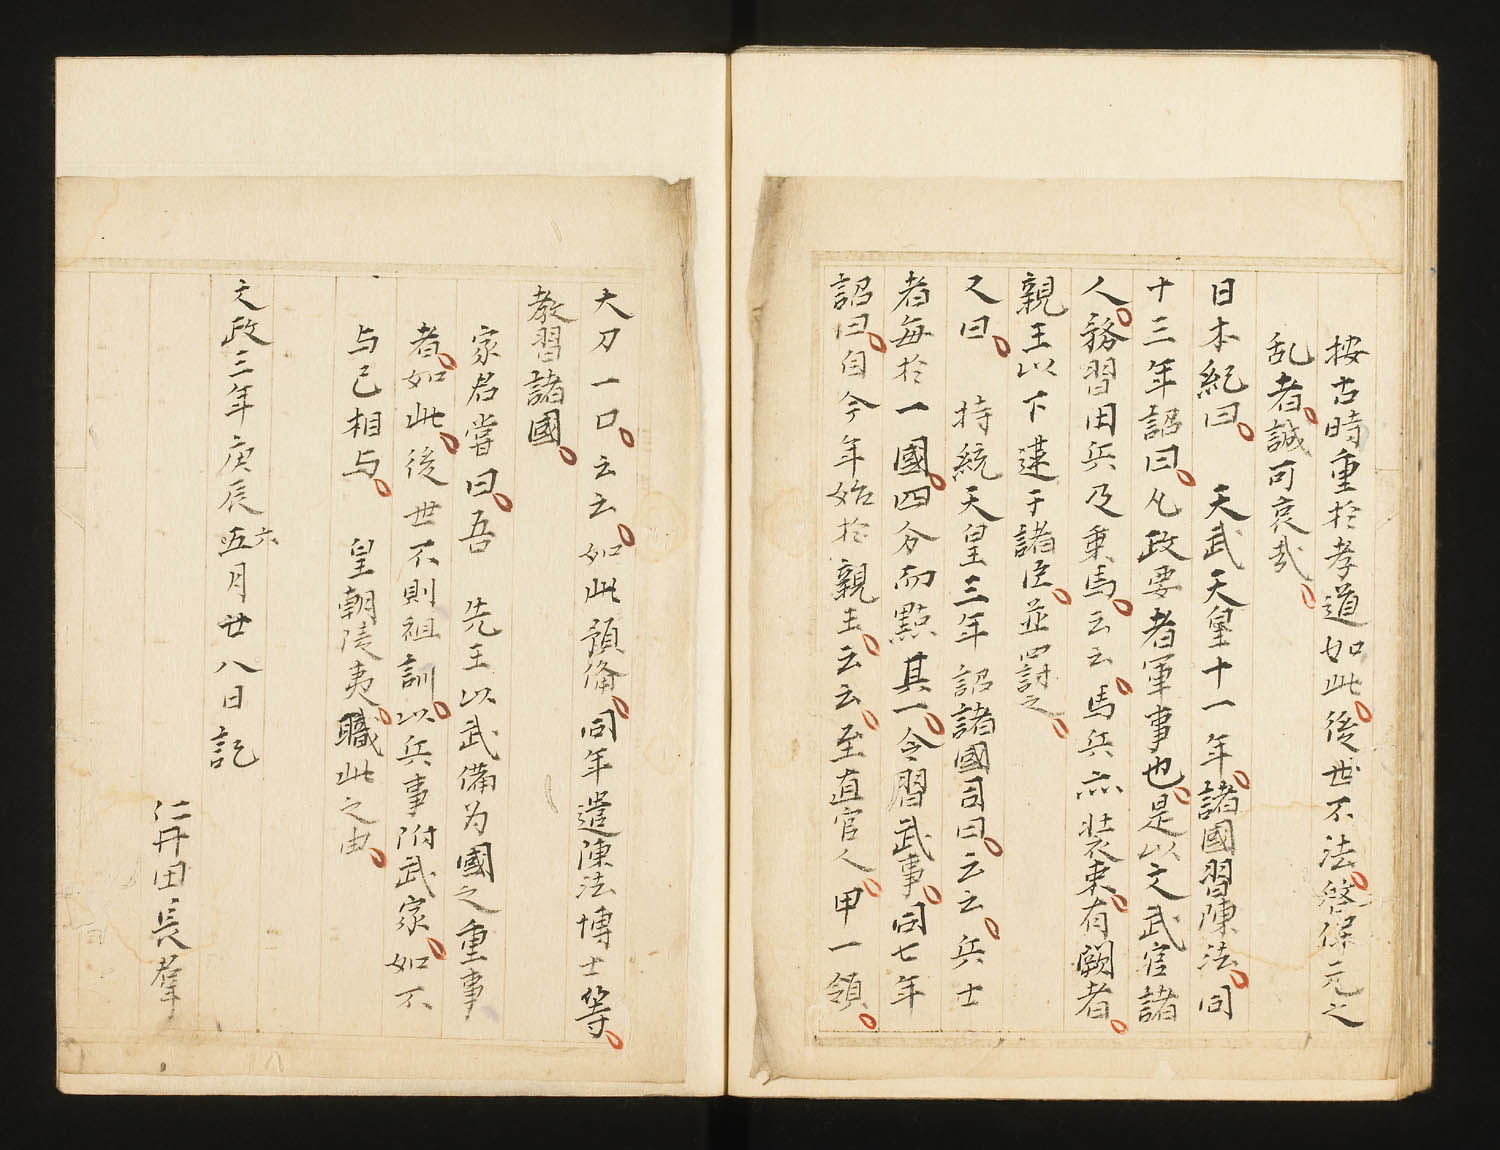 按古時重於孝道如此。後世不法。啓保元之
乱者。誠可哀哉。
日本紀曰。 天武天皇十一年。諸國習陳法。同
十三年詔曰。凡政要者軍事也。是以文武官諸
人。務習用兵及乗馬。云云。馬兵亦装束。有闕者。
親王以下逮于諸臣。並罰之。
又曰。 持統天皇三年 詔諸國司曰。云云。兵士
者每於一國。四分而點其一。令習武事。同七年
詔曰。自今年始於親王。云云。至直官人。甲一領。
大刀一口。云云。如此預備。同年遣陳法博士等。
教習諸國。
家君嘗曰。吾 先王以武備为國之重事
者。如此。後世不則祖訓。以兵事附武家。如不
与己相与。 皇朝陵夷。職此之由。
文政三年庚辰五六月廿八日記
仁丹田長羣